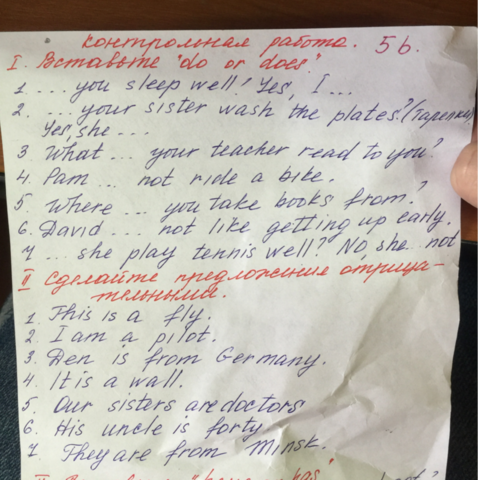 контрольная работа. 5б.
I. Вставьте "do or does"
1. ... you sleep well? Yes, I ...
2. ... your sister wash the plates? (тарелки)
Yes, she ...
3 What ... your teacher read to you?
4. Pam ... not ride a bike.
5 Where ... you take books from?
6. David ... not like getting up early.
7 ... she play tennis well? No, she not
II Сделайте предложение отрица-
тельными.
1. This is a fly.
2. I am a pilot.
3. Den is from Germany.
4. It is a wall.
5. Our sisters are doctors
6. His uncle is forty
7. They are from Minsk.